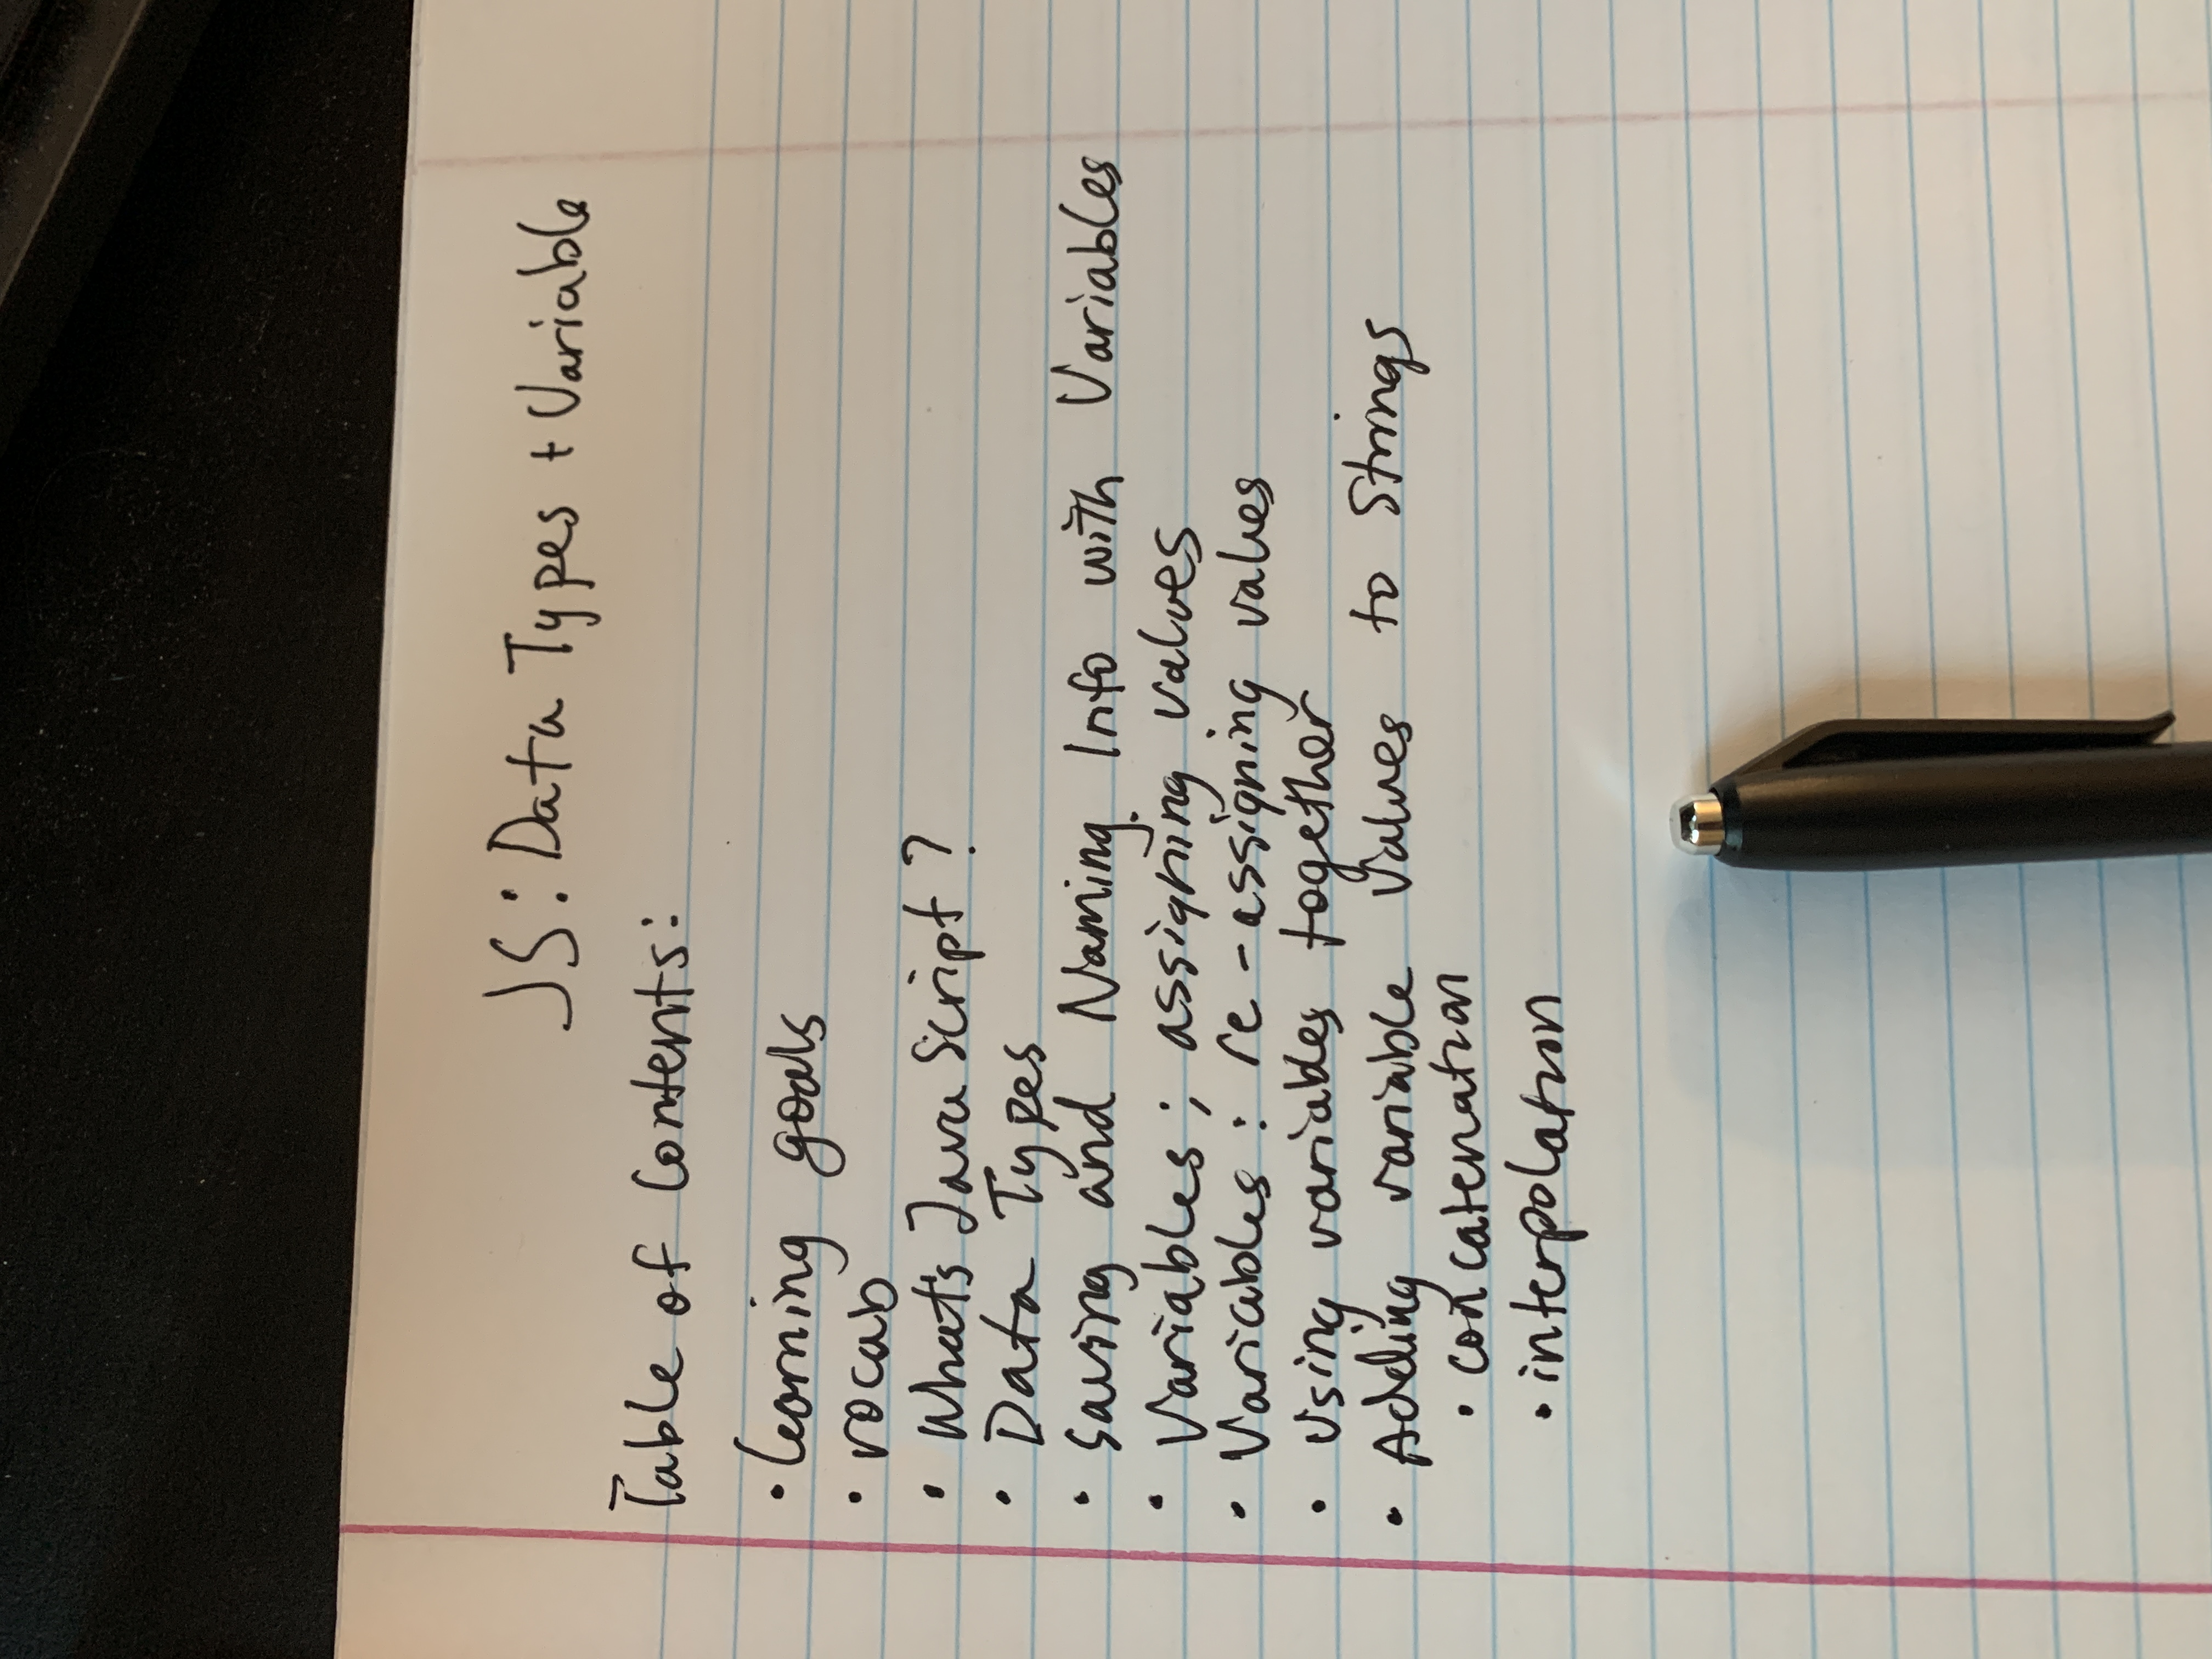 JS: Data Types + Variable
Table of Contents:
• Learning goals
• vocab
• What's JavaScript?
• Data Types
• Saving and Naming Info with Variables
• Variables; assigning values
• Variables: re-assigning values
• Using variables together
• Adding variable values to Strings
• concatenation
• interpolation